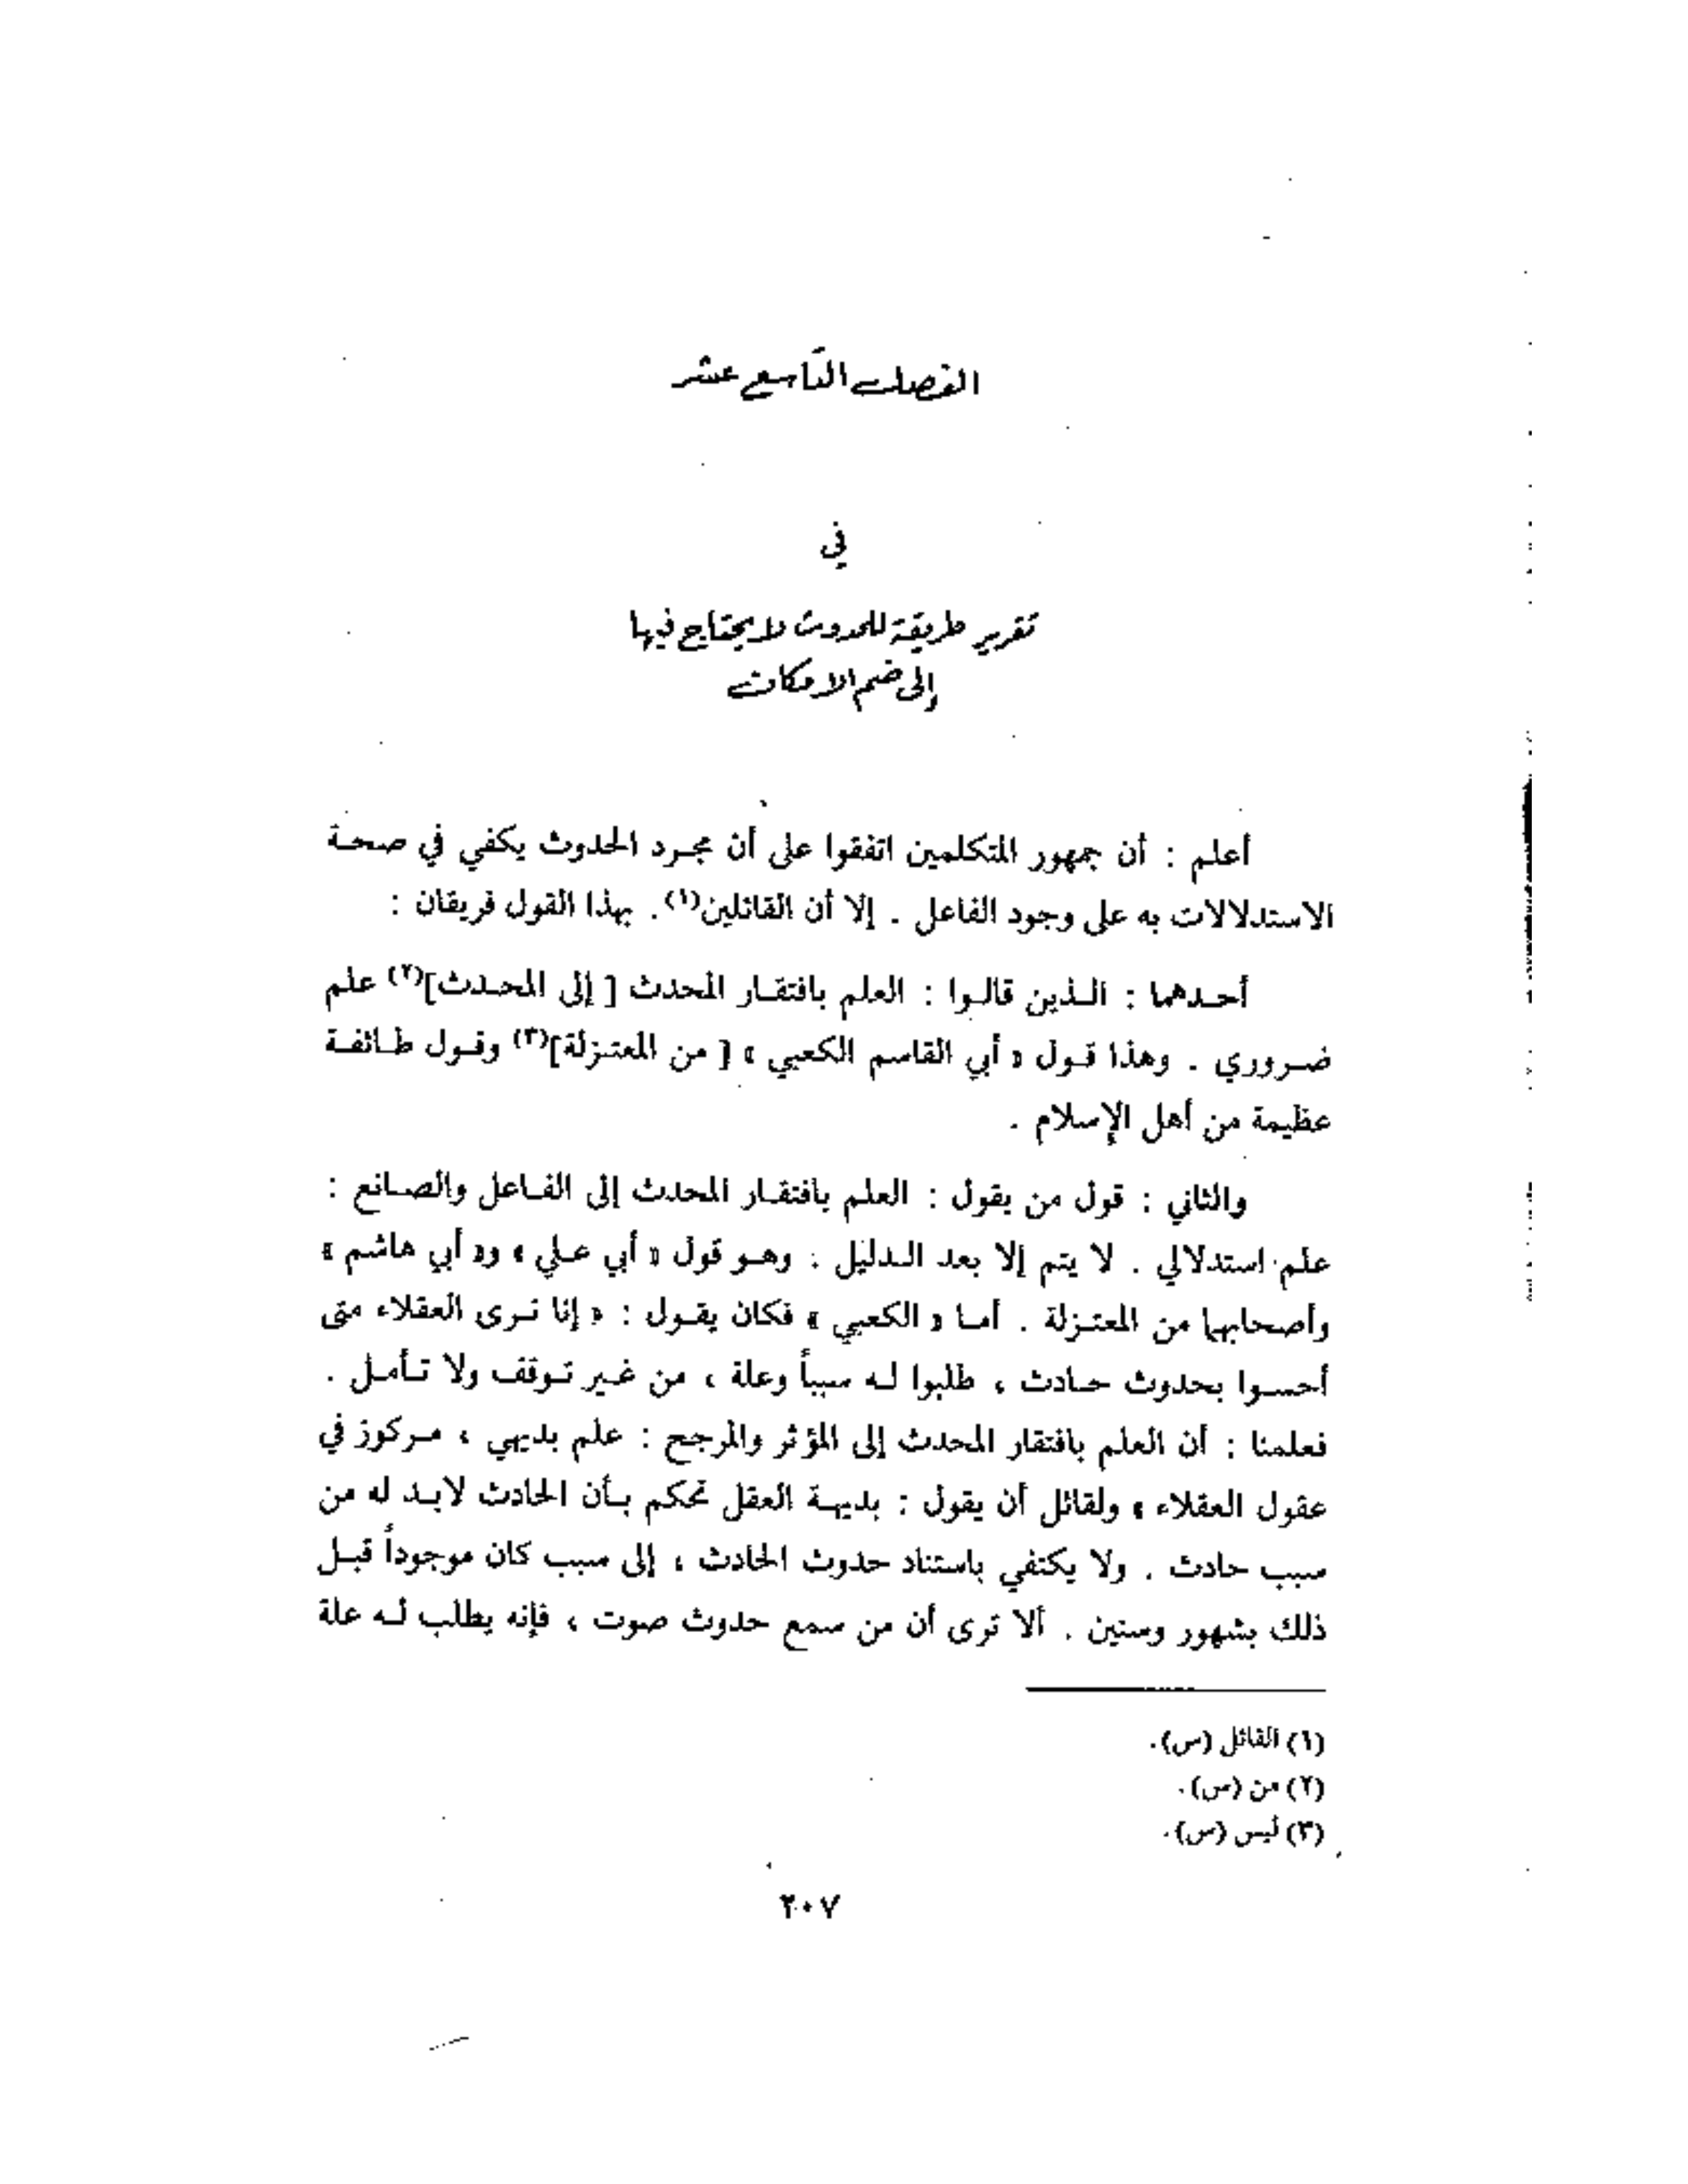 الفصل التاسع عشر
في
تقرير طريقة للحدوث لا يحتاج فيها
إلى ضم الامكان
أعلم : أن جمهور المتكلمين اتفقوا على أن مجرد الحدوث يكفي في صحة
الاستدلالات به على وجود الفاعل . إلا أن القائلين(١). بهذا القول فريقان :
أحدهما : الذين قالوا : العلم بافتقار المحدث [ إلى المحدث](٢) علم
ضروري . وهذا قول « أبي القاسم الكعبي » [ من المعتزلة](٣) وقول طائفة
عظيمة من أهل الإسلام .
والثاني : قول من يقول : العلم بافتقار المحدث إلى الفاعل والصانع :
علم استدلالي . لا يتم إلا بعد الدليل . وهو قول « أبي علي » و« أبي هاشم »
وأصحابهما من المعتزلة . أما « الكعبي » فكان يقول : « إنا نرى العقلاء متى
أحسوا بحدوث حادث ، طلبوا له سبباً وعلة ، من غير توقف ولا تأمل .
فعلمنا : أن العلم بافتقار المحدث إلى المؤثر والمرجح : علم بديهي ، مركوز في
عقول العقلاء » ولقائل أن يقول : بديهة العقل تحكم بأن الحادث لابد له من
سبب حادث . ولا يكتفي باستناد حدوث الحادث ، إلى سبب كان موجوداً قبل
ذلك بشهور وسنين . ألا ترى أن من سمع حدوث صوت ، فإنه يطلب له علة
(١) القائل (س).
(٢) من (س).
(٣) ليس (س).
٢٠٧